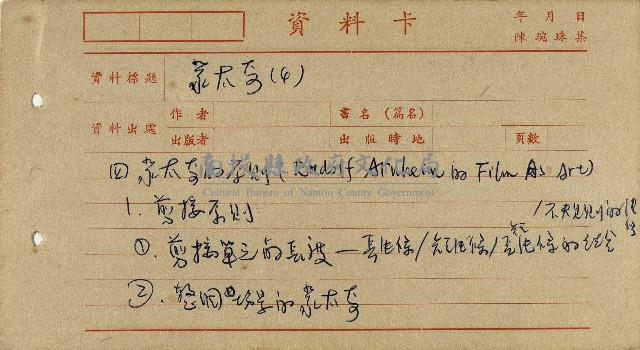 資料卡
年 月 日
陳琬珠集
資料標題 蒙太奇(4)
資料出處 作者 書名(篇名)
出版者 出版時地 頁數
南投縣政府文化局
Cultural Bureau of Nantou County Government
四 蒙太奇的原則(Rudolf Arnheim的Film As Art)
1. 剪接原則
①. 剪接單元的長度—長條/短條/長短條的結合/不規則的
②. 整個場景的蒙太奇